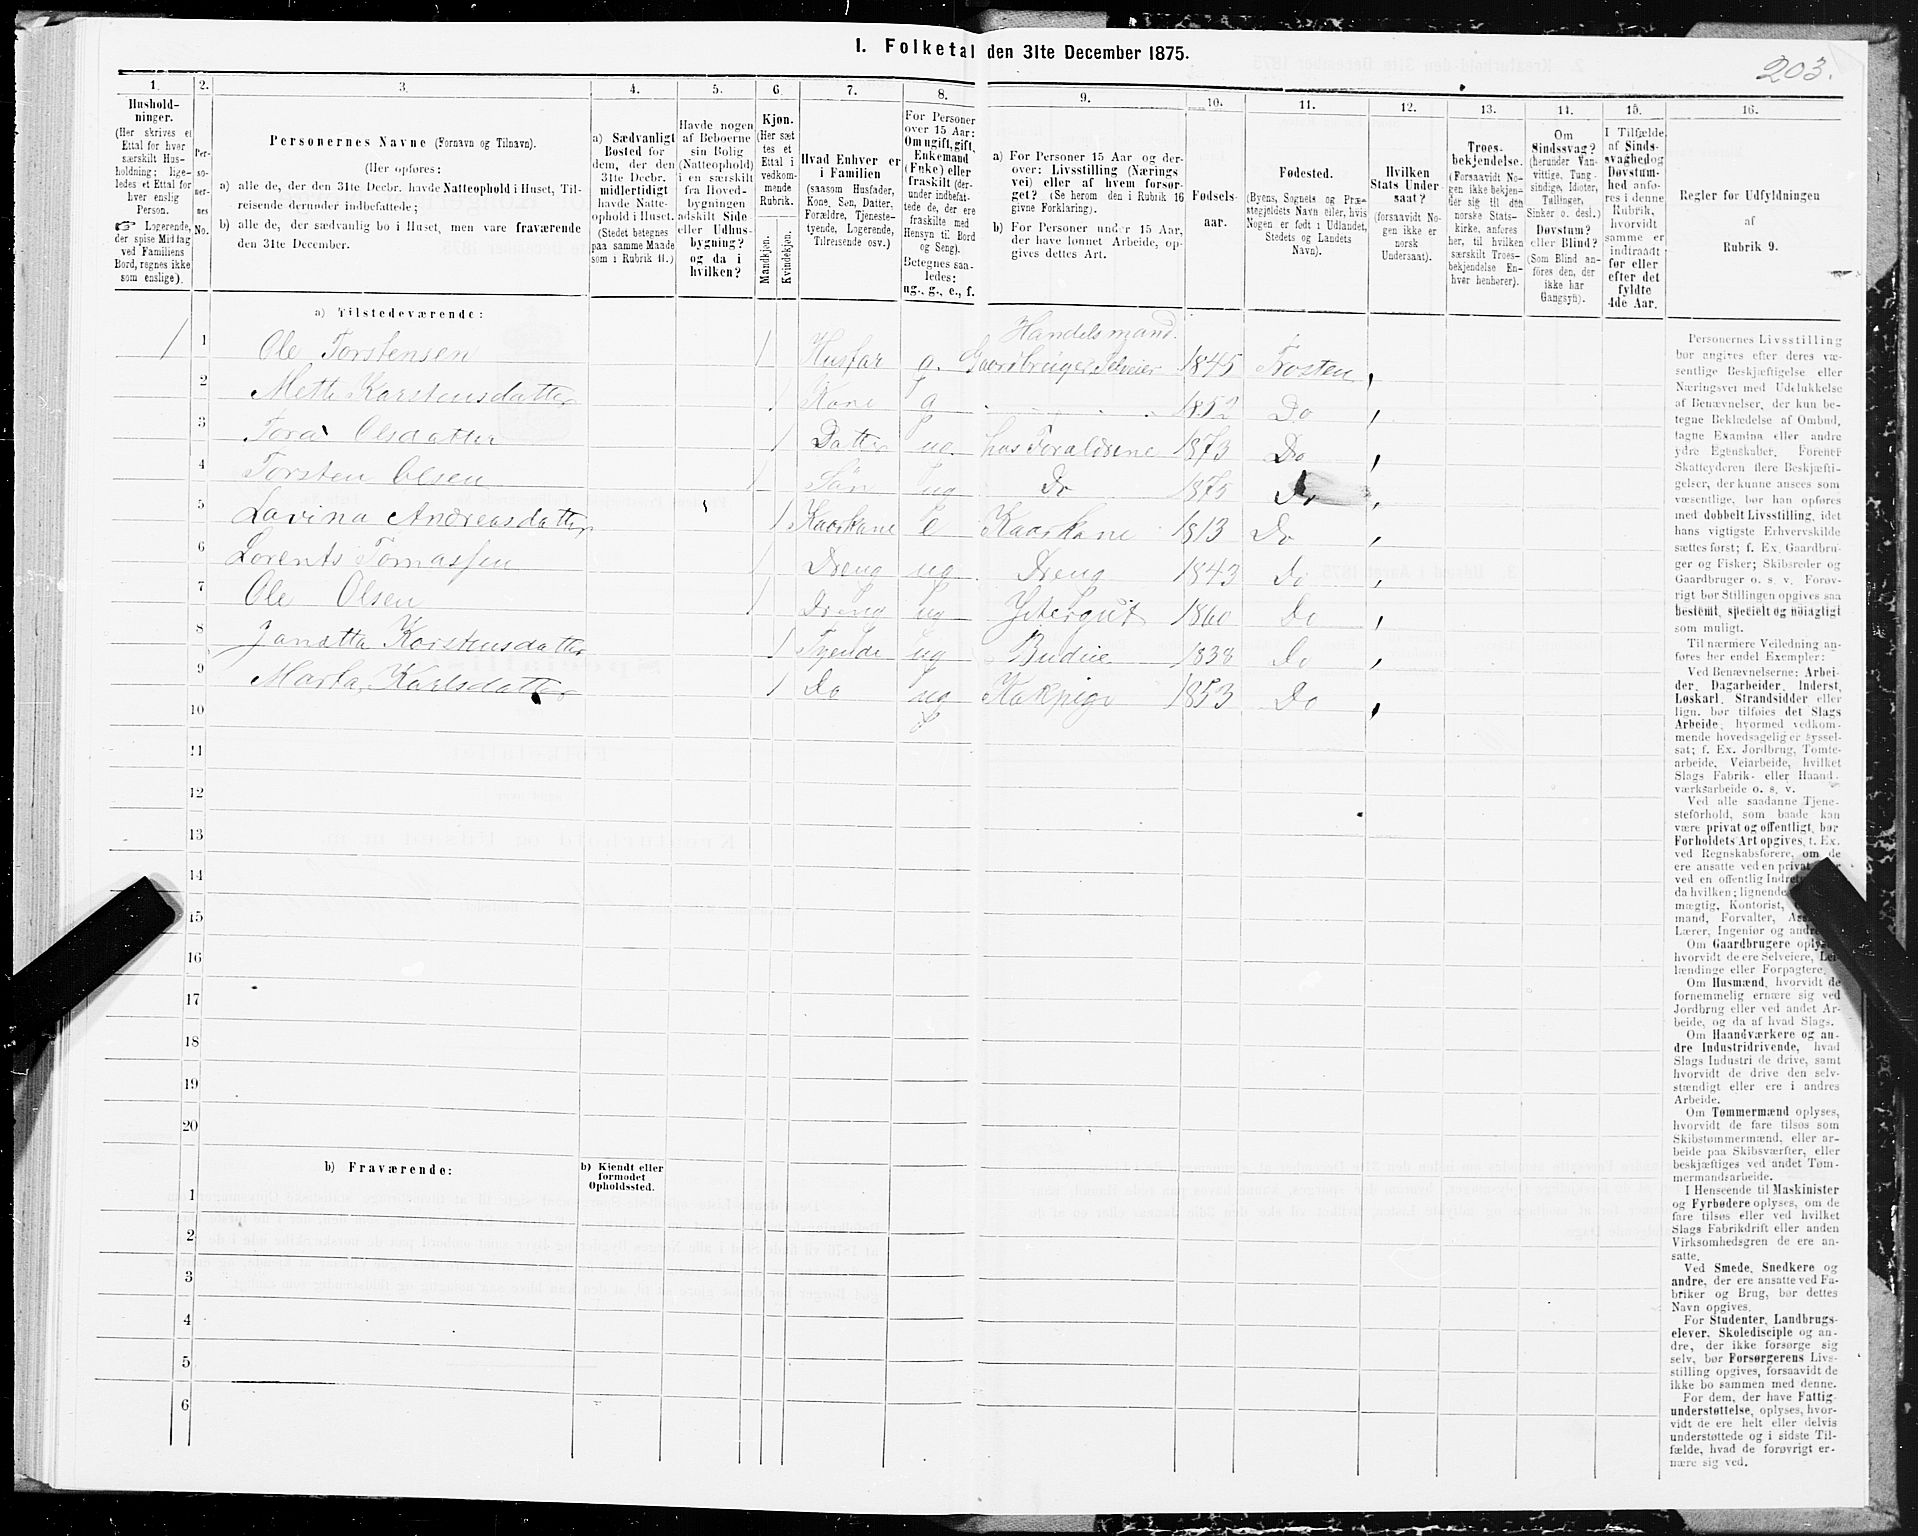 I. Folketal den 31te December 1875.
203.
1.
2.
3.
4.
5.
6.
7.
8.
9.
10.
11.
12.
13.
14.
15.
16.
Hushold-
ninger.
(Her skrives et
Ettal for hver
særskilt Hus-
holdning; lige-
ledes et Ettal for
hver enslig
Person.
☞ Logerende,
der spise Middag
ved Familiens
Bord, regnes ikke
som enslige).
Per-
so-
ner-
nes
No.
Personernes Navne (Fornavn og Tilnavn).
(Her opføres:
a) alle de, der den 31te Decbr. havde Natteophold i Huset, Til-
reisende derunder indbefattede;
b) alle de, der sædvanlig bo i Huset, men vare fraværende
den 31te December.
a) Sædvanligt
Bosted for
dem, der den
31te Decbr.
midlertidigt
havde Natte-
ophold i Huset.
(Stedet betegnes
paa samme Maade
som i Rubrik 11.)
Havde nogen
af Beboerne
sin Bolig
(Natteophold)
i en særskilt
fra Hoved-
bygningen
adskilt Side-
eller Udhus-
bygning?
og da i
hvilken?
Kjøn.
(Her sæt-
tes et
Ettal i
vedkom-
mende
Rubrik.
Mandkjøn.
Kvindekjøn.
Hvad Enhver er
i Familien
(saasom Husfader,
Kone, Søn, Datter,
Forældre, Tjeneste-
tyende, Logerende,
Tilreisende osv.)
For Personer
over 15 Aar:
Om ugift, gift,
Enkemand
(Enke) eller
fraskilt (der-
under indbefat-
tede de, der ere
fraskilte med
Hensyn til Bord
og Seng).
Betegnes saa-
ledes:
ug., g., e., f.
a) For Personer 15 Aar og der-
over: Livsstilling (Nærings-
vei) eller af hvem forsør-
get? (Se herom den i Rubrik 16
givne Forklaring).
b) For Personer under 15 Aar,
der have lønnet Arbeide, op-
gives dettes Art.
Fødsels-
aar.
Fødested.
(Byens, Sognets og Præ-
stegjeldets Navn eller, hvis
Nogen er født i Udlandet,
Stedets og Landets
Navn).
Hvilken
Stats Under-
saat?
(forsaavidt No-
gen ikke er
norsk
Undersaat).
Troes-
bekjendelse.
(Forsaavidt No-
gen ikke bekjen-
der sig til den
norske Stats-
kirke, anføres
her, til hvilken
særskilt Troes-
bekjendelse En-
hver henhører).
Om
Sindssvag?
(herunder Van-
vittige, Tung-
sindige, Idioter,
Tullinger,
Sinker o. desl.)
Døvstum?
eller Blind?
(Som Blind an-
føres den, der
ikke har
Gangsyn).
I Tilfælde
af Sinds-
svaghed og
Døvstum-
hed anfø-
res i denne
Rubrik,
hvorvidt
samme er
indtraadt
før eller
efter det
fyldte
4de Aar.
Regler for Udfyldningen
af
Rubrik 9.
a) Tilstedeværende:
Handelsmand.
1 1 Ole Torstensen 1 Husfar g. Gaardbruger Selveier 1845 Frosten
2 Mette Karstensdatter 1 Kone g 1852 Do
3 Tora Olsdatter 1 Datter ug hos Foraldrene 1873 Do
4 Torsten Olsen 1 Sön ug Do 1875 Do
5 Lavina Andreasdatter 1 Kaarkane e Kaarkane 1813 Do
6 Lorents Tomassen 1 Dreng ug Dreng 1843 Do
7 Ole Olsen 1 Dreng ug 1860 Do
8 Janetta Korstensdatter 1 Tyende ug Budeie 1838 Do
9 Marta Karlsdatter 1 Do ug Kakpige 1853 Do
10
11
12
13
14
15
16
17
18
19
20
b) Fraværende:
b) Kjendt eller
formodet
Opholdssted.
1
2
3
4
5
6
Personernes Livsstilling
bør angives efter deres væ-
sentlige Beskjæftigelse eller
Næringsvei med Udelukkelse
af Benævnelser, der kun be-
tegne Beklædelse af Ombud,
tagne Examina eller andre
ydre Egenskaber. Forener
Skatteyderen flere Beskjæfti-
gelser, der kunne ansees som
væsentlige, bør han opføres
med dobbelt Livsstilling, idet
hans vigtigste Erhvervskilde
sættes først; f. Ex. Gaardbru-
ger og Fisker; Skibsreder og
Gaardbruger o. s. v. Forøv-
rigt bør Stillingen opgives saa
bestemt, specielt og nøiagtigt
som muligt.
Til nærmere Veiledning an-
føres her endel Exempler:
Ved Benævnelserne: Arbei-
der, Dagarbeider, Inderst,
Løskarl, Strandsidder eller
lign. bør tilføies det Slags
Arbeide, hvormed vedkom-
mende hovedsagelig er syssel-
sat; f. Ex. Jordbrug, Tomte-
arbeide, Veiarbeide, hvilket
Slags Fabrik- eller Haand-
værksarbeide o. s. v.
Ved alle saadanne Tjene-
steforhold, som baade kan
være privat og offentligt, bør
Forholdets Art opgives, t. Ex.
ved Regnskabsførere, om de
ere ansatte ved en privat eller
ved en offentlig Indretning og
da hvilken; lignende
mægtig, Kontorist,
mand, Forvalter,
Lærer, Ingeniør og andre.
Om Gaardbrugere oplyses,
hvorvidt de ere Selveiere, Lei-
lændinge eller Forpagtere.
Om Husmænd, hvorvidt de
fornemmelig ernære sig ved
Jordbrug eller ved andet Ar-
beide, og da af hvad Slags.
Om Haandværkere og an-
dre Industridrivende, hvad
Slags Industri de drive, samt
hvorvidt de drive den selv-
stændigt eller ere i andres
Arbeide.
Om Tømmermænd oplyses,
hvorvidt de fare tilsøs som
Skibstømmermænd, eller ar-
beide paa Skibsværfter, eller
beskjæftiges ved andet Tøm-
mermandsarbeide.
I Henseende til Maskinister
og Fyrbødere oplyses, om de
fare tilsøs eller ved hvilket
Slags Fabrikdrift eller anden
Virksomhedsgren de ere an-
satte.
Ved Smede, Snedkere og
andre, der ere ansatte ved Fa-
briker og Brug, bør dettes
Navn opgives.
For Studenter, Landbrugs-
elever, Skoledisciple og an-
dre, der ikke forsørge sig
selv, bør Forsørgerens Livs-
stilling opgives, forsaavidt de
ikke bo sammen med denne.
For dem, der have Fattig-
understøttelse, oplyses, hvor-
vidt de ere helt eller delvis
understøttede og i sidste Til-
fælde, hvad de forøvrigt er-
nære sig ved.